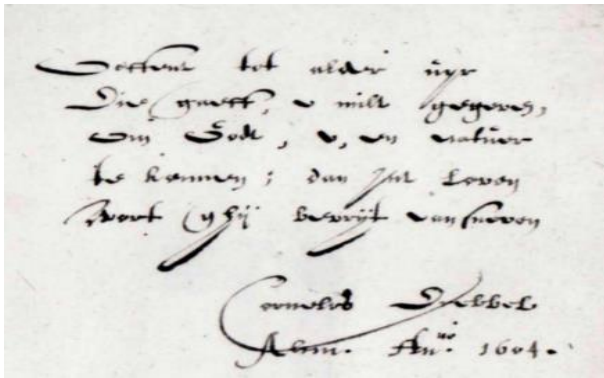 Oeffent tot alder uyr
Die gaeft, u milt gegeven,
Om Godt, u, en natuer
te kennen; dan int leven
Wort ghij bevrijt van sneven
Cornelis Drebbel
Anno. 1604.